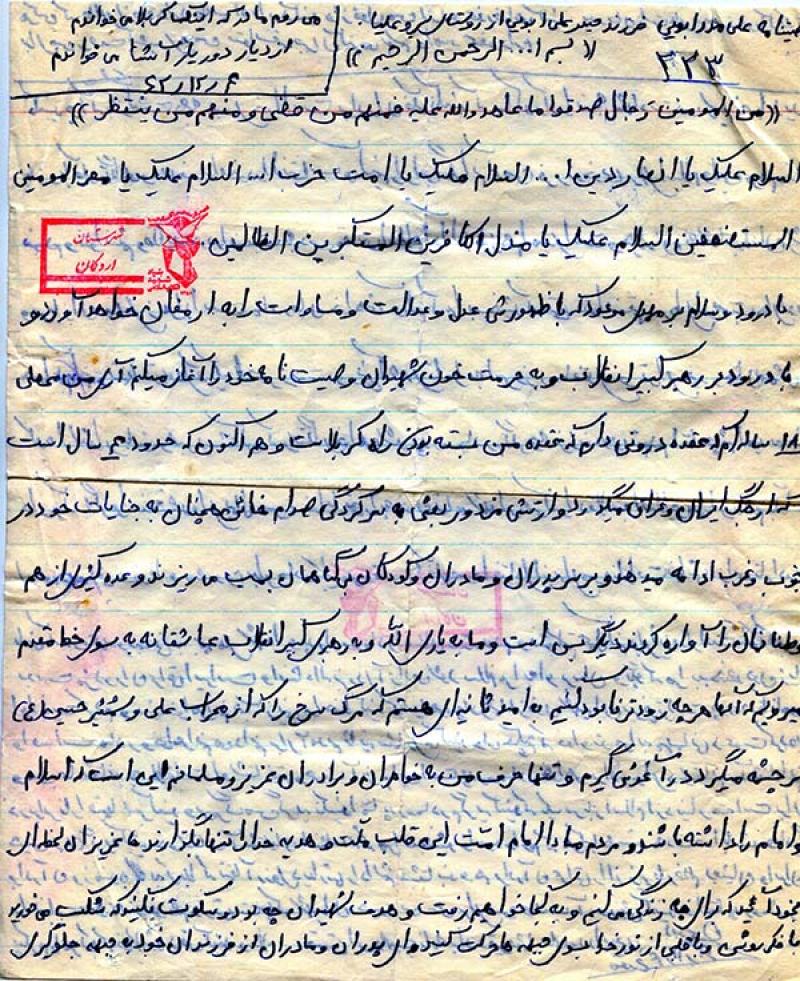 وصیتنامه علی مدد ابویی فرزند حیدرعلی ابویی از روستای سرو علیا
۲۲۳
«بسم الله الرحمن الرحیم»
می روم مادر که اینک کربلا می خواندم
از دیار دور یار آشنا می خواندم
۶۲/۱۲/۶
«من المومنین رجال صدقوا ما عاهدوالله علیه فمنهم من قضی و منهم من ینتظر»
السلام علیک یا انصار دین ا.. السلام علیک یا امت حزب الله السلام علیک یا معز المومنین
المستضعفین السلام علیک یا مذل الکافرین المتکبرین الظالمین.
شهرستان
اردکان
با درود و سلام بر مهدی موعود که با ظهورش عدل و عدالت و مساوات را به ارمغان خواهد آورد و
با درود بر رهبر کبیر انقلاب و به حرمت خون شهیدان وصیت نامه خود را آغاز میکنم آری من محصلی
۱۸ ساله ام که عقده درونی دارم که عقده من بسته بودن راه کربلاست و هم اکنون که حدود سال است
که از جنگ ایران و عراق میگذرد و ارتش مزدور بعثی به سرکردگی صدام خائن همچنان به جنایات خود در
جنوب و غرب ادامه میدهد و بر سر پدران و مادران و کودکان بیگناهمان بمب می ریزند و عده کثیری از هم
وطنانمان را آواره کردند دیگر بس است و ما به یاری الله و به رهبری کبیر انقلاب عاشقانه به سوی خط مقدم
میرویم که آنها هر چه زودتر نابود کنیم به امید ثانیه ای هستم که مرگ سرخ را که از محراب علی و شمشیر حسین (ع)
سرچشمه میگیرد در آغوش گیرم و تنها حرف من به خواهران و برادران عزیز و مسلمانم این است که اسلام
و امام را داشته باشند و مردم مبادا امام امت این قلب ملت و هدیه خدا را تنها بگذارند ها عزیزان لحظه ای
بخود آئید که برای چه زندگی می کنیم و به کجا خواهیم رفت و هدف شهیدان چه بود و سکوت نکنید که شکست می خورید
با فکر روشن و با قلبی از نور خدا بسوی جبهه ها حرکت کنید وای پدران و مادران از فرزندان خود به جبهه جلوگیری